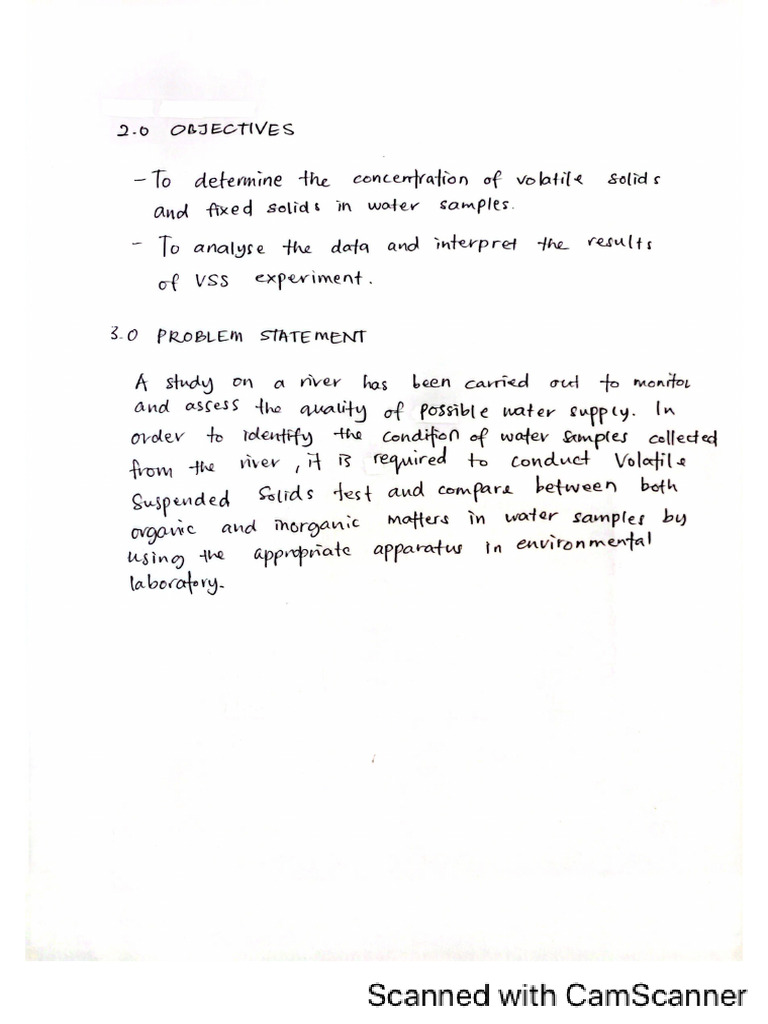 2.0 OBJECTIVES
- To determine the concentration of volatile solids
and fixed solids in water samples.
- To analyse the data and interpret the results
of VSS experiment.
3.0 PROBLEM STATEMENT
A study on a river has been carried out to monitor
and assess the quality of possible water supply. In
order to identify the condition of water samples collected
from the river, it is required to conduct Volatile
Suspended Solids test and compare between both
organic and inorganic matters in water samples by
using the appropriate apparatus in environmental
laboratory.
Scanned with CamScanner